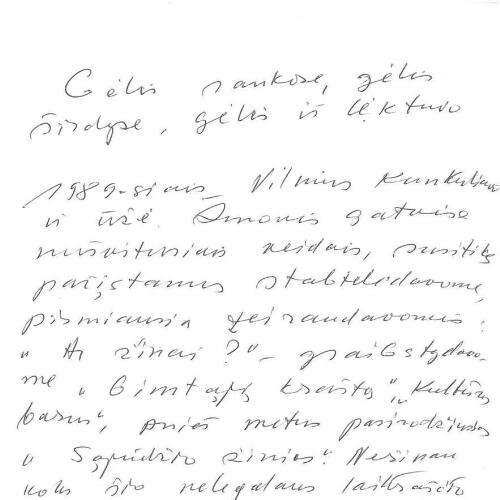 Gėlės rankose, gėlės
širdyse, gėlės iš lėktuvo
1989-siais Vilnius kunkuliavo
ir ūžė. Žmonės gatvėse
nušvitusiais veidais, susitikę
pažįstamus stabtelėdavome,
pirmiausia teiraudavomės:
„Ar žinai?" – graibstydavo-
me „Gimtąjį kraštą", „Kultūros
barus", prieš metus pasirodžiusias
„Sąjūdžio žinias". Nešinau
koks šio nelegalaus laikraščio